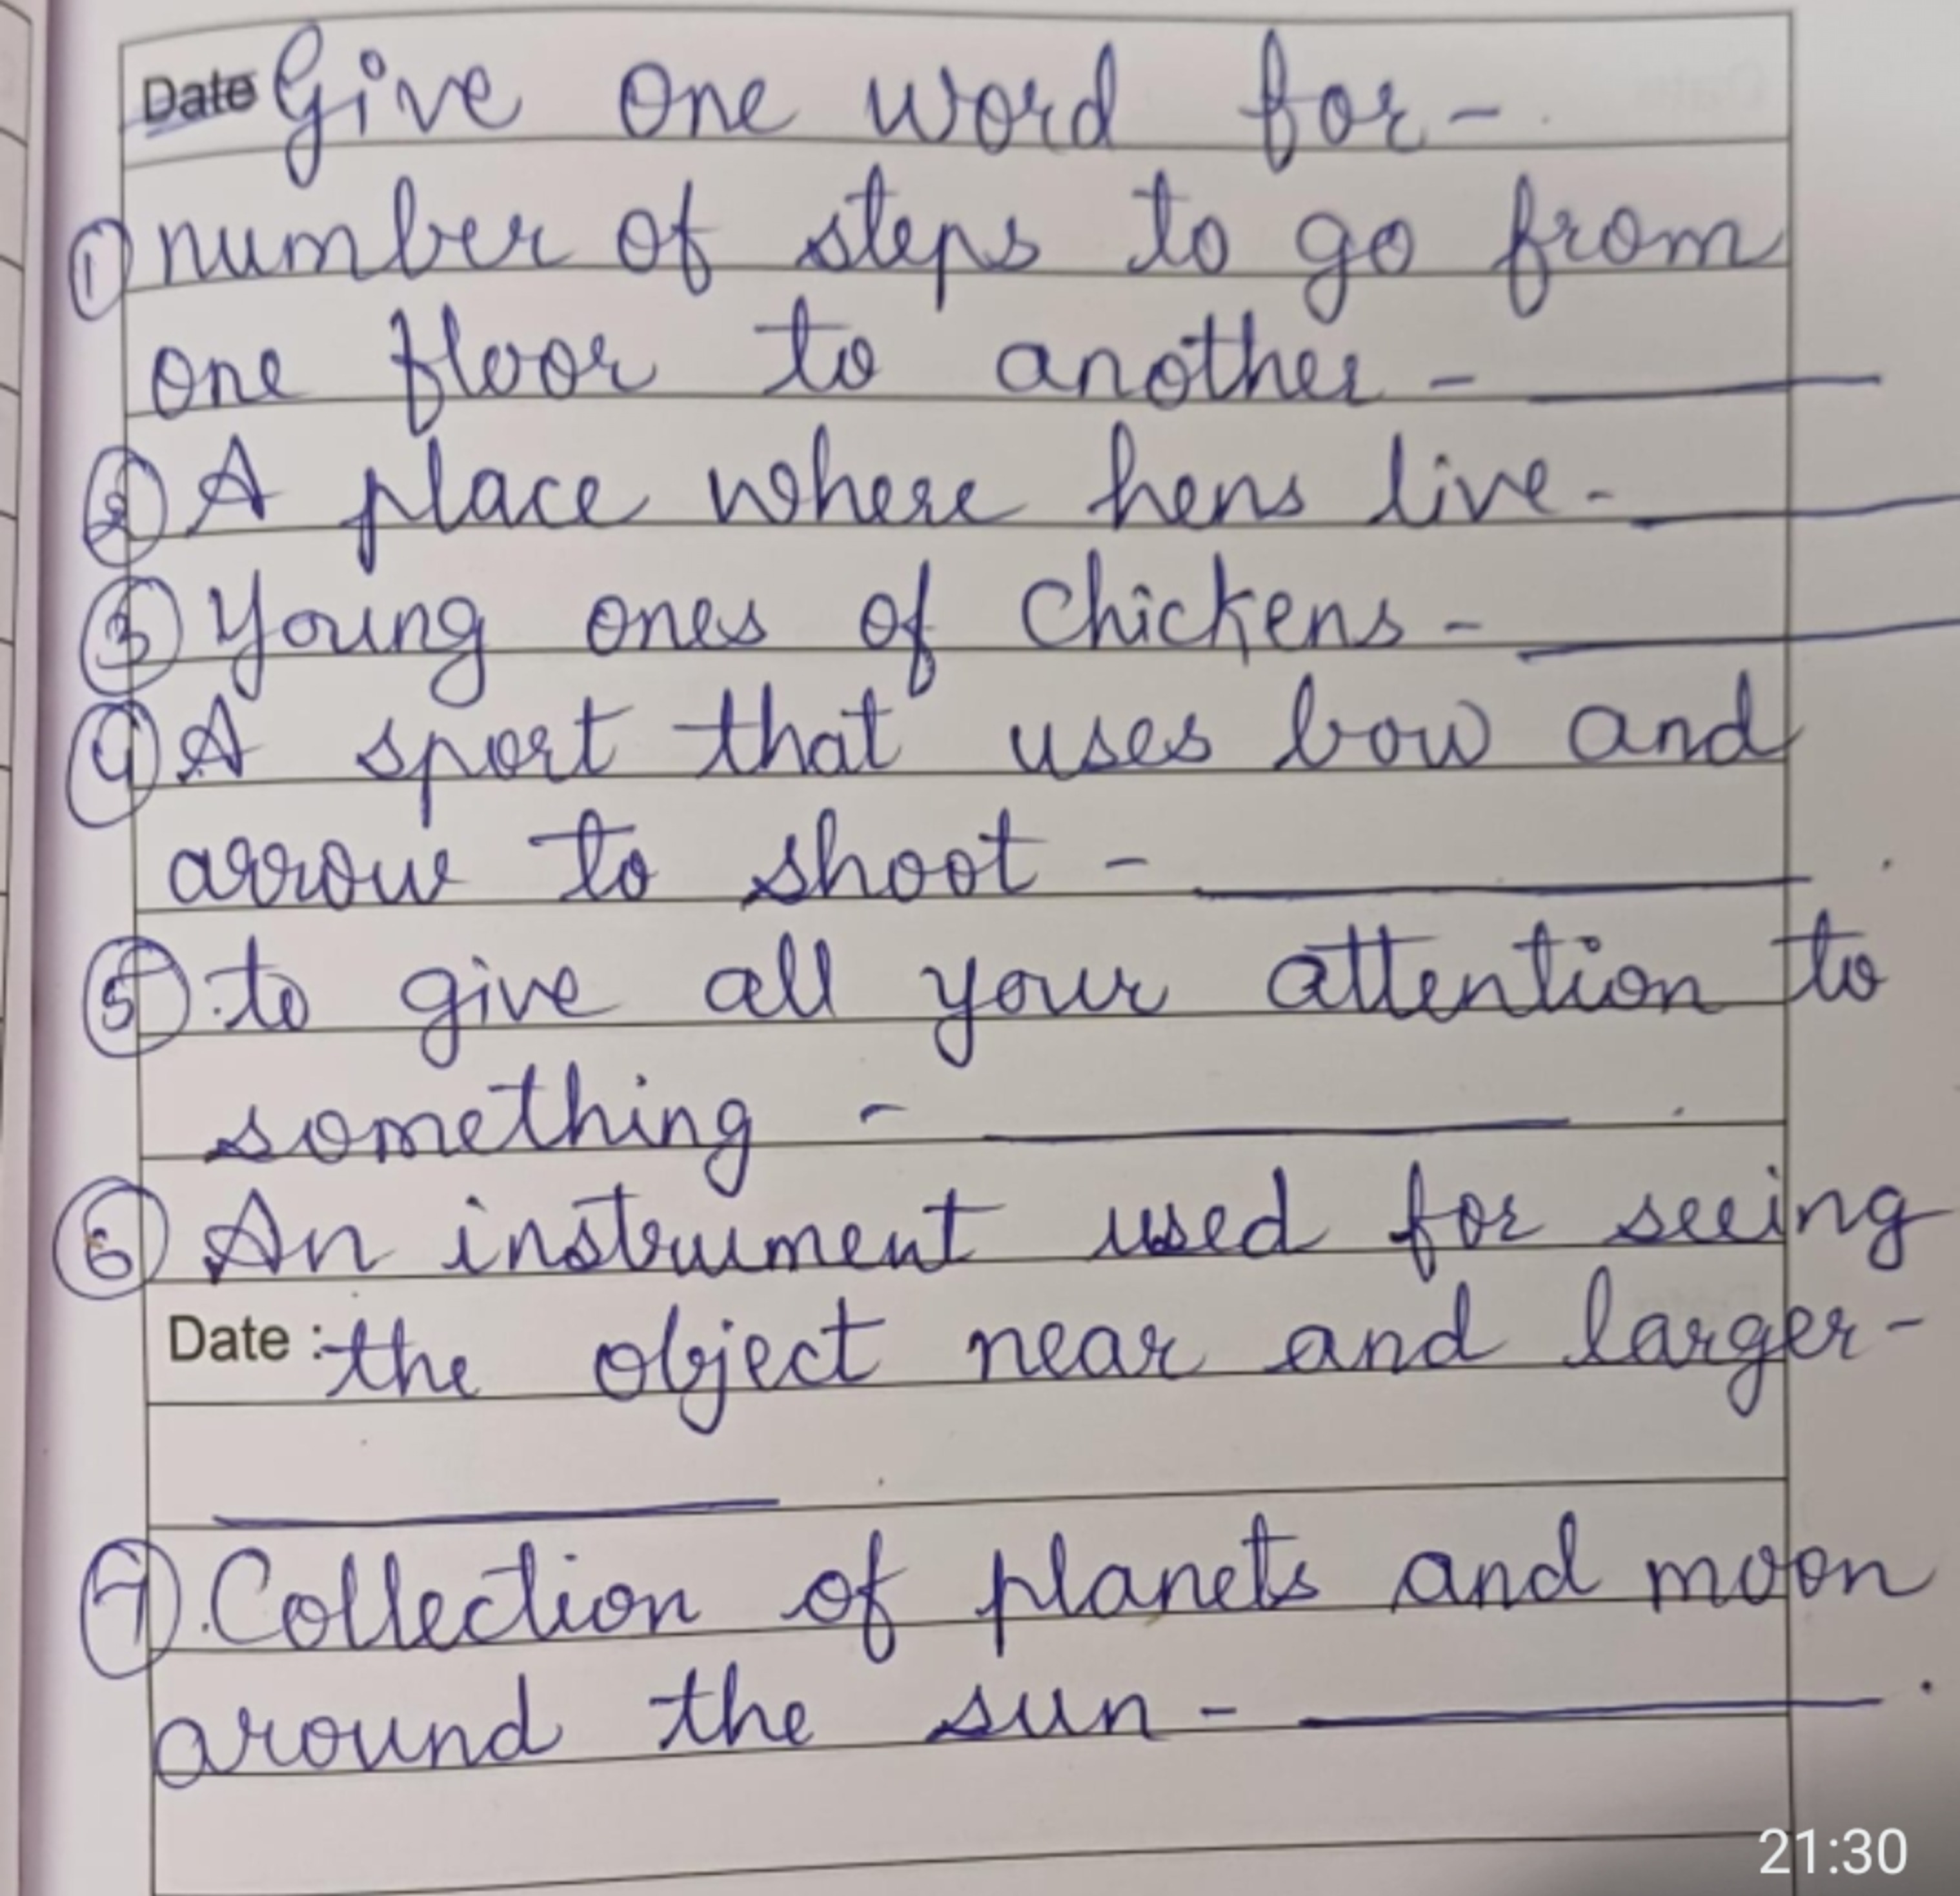 Date Give one word for-
① number of steps to go from
one floor to another -
② A place where hens live-
③ Young ones of chickens -
④ A sport that uses bow and
arrow to shoot -
⑤ to give all your attention to
something -
⑥ An instrument used for seeing
Date : the object near and larger-
⑦ Collection of planets and moon
around the sun - .
21:30